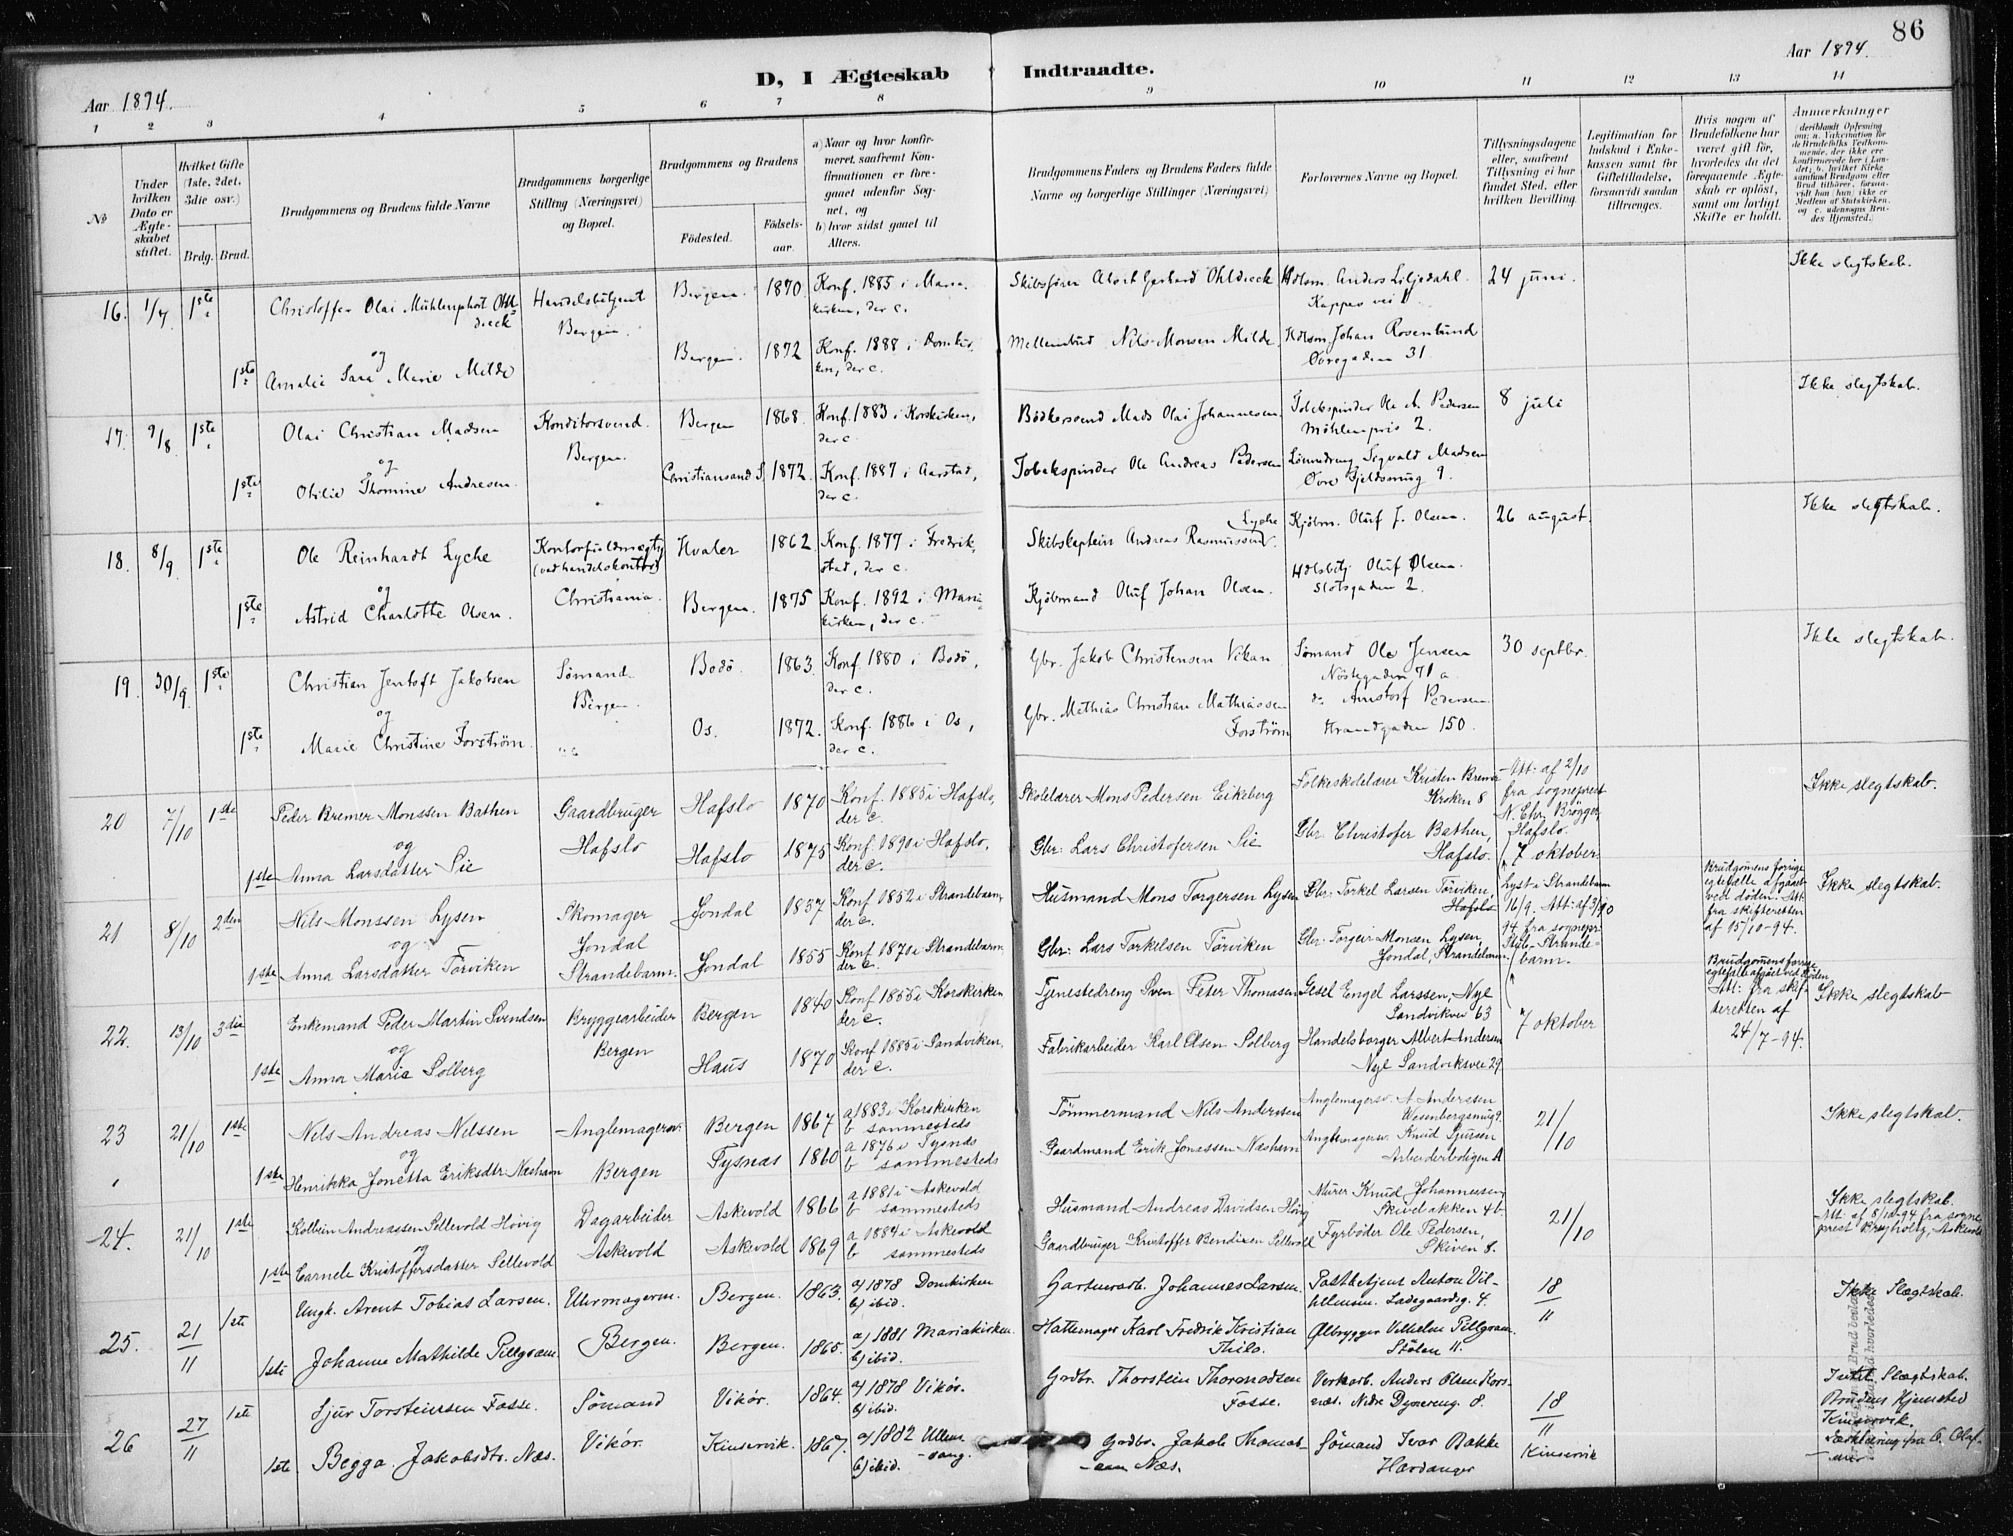 86
Aar 1894.
D, I Ægteskab Indtraadte.
Aar 1894.
1 2 3 4 5 6 7 8 9 10 11 12 13 14
No
Under hvilken Dato er Ægteskabet stiftet.
Hvilket Gifte (1ste, 2det, 3die osv.)
Brdg. Brud.
Brudgommens og Brudens fulde Navne
Brudgommens borgerlige Stilling (Næringsvei) og Bopæl.
Brudgommens og Brudens
Födested.
Födsels-aar.
a) Naar og hvor konfirmeret, saafremt Konfirmationen er foregaaet udenfor Sognet, og
b) hvor sidst gaaet til Alters.
Brudgommens Faders og Brudens Faders fulde Navne og borgerlige Stillinger (Næringsvei)
Forlovernes Navne og Bopæl.
Tillysningsdagene eller, saafremt Tillysning ei har fundet Sted, efter hvilken Bevilling.
Legitimation for Indskud i Enkekassen samt for Giftetilladelse, forsaavidt saadan tiltrænges.
Hvis nogen af Brudefolkene har været gift för, hvorledes da det foregaaende Ægteskab er oplöst, samt om lovligt Skifte er holdt.
Anmærkninger
16. 1/7 1ste Christoffer Olai Mühlenphort Ohldieck Handelsbetjent Bergen. Bergen. 1870 Konf. 1885 i Mariakirken, der c. Skibsfører Albert Gerhard Ohldieck Hdlsm. Anders Liljedahl. 24 juni. Ikke slegtskab.
og
1ste Amalie Sara Marie Milde Bergen. 1872 Konf. 1888 i Domkirken, der c. Mellembud Nils Monsen Milde Hdlsm. Johan Rosenlund Øvregaden 31
17. 9/8 1ste Olai Christian Madsen Konditorsvend. Bergen. Bergen 1868. Konf. 1883 i Korskirken, der c. Bödkersvend Mads Olai Johannesen Tobakspinder Ole A. Pedersen Möhlenpris 2. 8 juli Ikke slegtskab.
og
1ste Otilie Thomine Andresen. Christiansand S. 1872. Konf. 1887 i Aarstad, der c. Tobakspinder Ole Andreas Pedersen Sigvald Madsen Øvre Fjeldsmug 9.
18. 8/9 1ste Ole Reinhardt Lyche Kontorfuldmægtig (ved handelskontor) Christiania. Hvaler 1862 Konf. 1877 i Fredrikstad, der c. Skibskaptein Andreas Rasmussen Lyche Kjöbm. Oluf J. Olsen. 26 august. Ikke slegtskab.
og
1ste Astrid Charlotte Olsen. Bergen. 1875 Konf. 1892 i Mariakirken, der c. Kjöbmand Oluf Johan Olsen. Hdlsbtj. Oluf Olsen. Slotsgaden 2.
19. 30/9 1ste Christian Jentoft Jakobsen Sömand. Bergen. Bodö. 1863. Konf. 1880 i Bodö, der c. Gbr. Jakob Christensen Vikan Sömand Ole Jensen Nöstegaden 71 a. 30 septbr. Ikke slegtskab.
og
1ste Marie Christine Forström. Os. 1872. Konf. 1886 i Os, der c. Gbr. Mathias Christian Mathiassen Forström do Arnstof Pedersen Strandgaden 150.
20 7/10 1ste Peder Bremer Monssen Bathen Gaardbruger Hafslo Hafslo 1870 Konf. 1885 i Hafslo, der c. Skolelærer Mons Pedersen Eikeberg Folkeskolelærer Kristen Bremer Kroken 8 Att: af 2/10 fra sogneprest N. Chr. Brögger, Hafslo. 7 oktober. Ikke slegtskab.
og
1ste Anna Larsdatter Sie Hafslo 1875 Konf. 1890 i Hafslo, der c. Gbr: Lars Christofersen Sie Gbr. Christofer Bathen, Hafslo.
21 8/10 2den Nils Monssen Lysen Skomager Jondal Strandebarm. Jondal 1837 Konf 1852 i Strandebarm, der c. Husmand Mons Torgersen Lysen Gbr: Torkel Larsen Törviken, Hafslo Lyst i Strandebarm 16/9. Att: af 3/10 94 fra sognepr: Strandebarm. Brudgomens forrige egtefælle afgaaet ved döden. Att: fra skifteretten af 15/10-94. Ikke slegtskab.
og
1ste Anna Larsdatter Törviken Jondal 1855 Konf. 1870 i Strandebarm, der c. Gbr: Lars Torkelsen Törviken Gbr: Torgeir Monsen Lysen, Jondal, Strandebarm.
22. 13/10 3die Enkemand Peder Martin Svendsen Bryggearbeider Bergen Bergen 1840 Konf 1855 i Korskirken der c. Tjenestedreng Sven Peter Thomasen Gesel Engel Larssen, Nyl Sandviksvei 63 7 oktober Brudgomens forrige egtefælle afgået ved döden. Att: fra skifteretten af 24/7-94. Ikke slegtskab
og
1ste Anna Marie Solberg Haus 1870 Konf 1885 i Sandviken, der c. Fabrikarbeider Karl Olsen Solberg Handelsborger Albert Andersen Nyl Sandviksvei 29.
23 21/10 1ste Nils Andreas Nilssen Anglemagersv. Bergen Bergen 1867 a 1883 i Korskirken b sammesteds Tömmermand Nils Anderssen Anglemagersv. A Anderssen Wesenbergsmug 9. 21/10 Ikke slegtskab.
og
1ste Henrikka Jonetta Eriksdtr. Nesham Tysnæs 1860 a 1876 i Tysnæs b sammesteds Gaardmand Erik Jonassen Nesham Anglemagersv. Knud Sjursen Arbeiderboligen A
24. 21/10 1ste Kolbein Andreassen Sellevold Høvig Dagarbeider Askevold Askevold 1866 a 1881 i Askevold b sammesteds Husmand Andreas Davidsen Høvig Murer Knud Johannessen, Skivebakken 4b. 21/10 Ikke slegtskab. Att. af 8/10-94 fra sogneprest , Askevold
og
1ste Carnele Kristoffersdatter Sellevold Askevold 1869 a 1884 i Askevold b sammesteds Gaardbruger Kristoffer Bendixen Sellevold Fyrböder Ole Pedersen, Skiven 8.
25. 21/11 1ste Ungk. Arent Tobias Larsen. Uhrmagersv. Bergen. Bergen. 1863. a) 1878 Domkirken b) ibid. Gartnerarb. Johannes Larsen. Postbetjent Anton Vilhelmsen. Ladegaardsg. 4. 18/11 Ikke Slægtskab.
1ste Johanne Mathilde Pillgram. Bergen. 1865. a) 1881 Mariakirken. b) ibid. Hattemager Karl Fredrik Kristian Thilo. Ølbrygger Vilhelm Pillgram. Stölen 11.
26 27/11 1ste Sjur Torsteinsen Fosse. Sömand Vikör. Vikör. 1864. a) 1878 Vikör. b) ibid. Grdbr. Thorstein Thormodsen Fosse. Verkarb. Anders Olsen Korsnæs. Nedre Dyvereng. 8. 18/11 Kinservik Intet Slægtskab. Brudens Hjemsted Kinservik.
1ste Begga Jakobsdtr. Næs. Kinservik. 1867. a) 1882 Ullensvang. b) ibid. Grdbr. Jakob Thomassen Næs. Sömand Ivar Bakke Hardanger